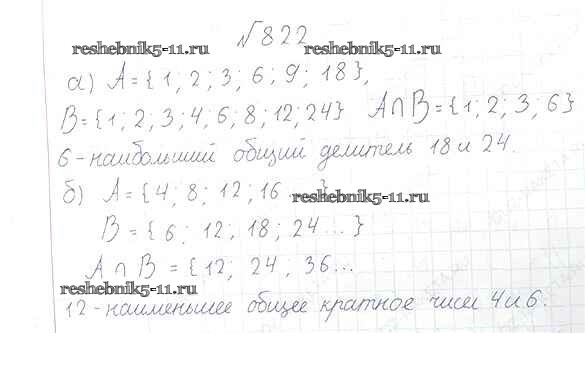 №822
reshebnik5-11.ru reshebnik5-11.ru
а) A={1; 2; 3; 6; 9; 18},
B={1; 2; 3; 4; 6; 8; 12; 24} A∩B={1; 2; 3; 6}
6-наибольший общий делитель 18 и 24.
б) A={4; 8; 12; 16 } reshebnik5-11.ru
B={6; 12; 18; 24...}
A∩B={12; 24; 36...
reshebnik5-11.ru
12-наименьшее общее кратное чисел 4 и 6.